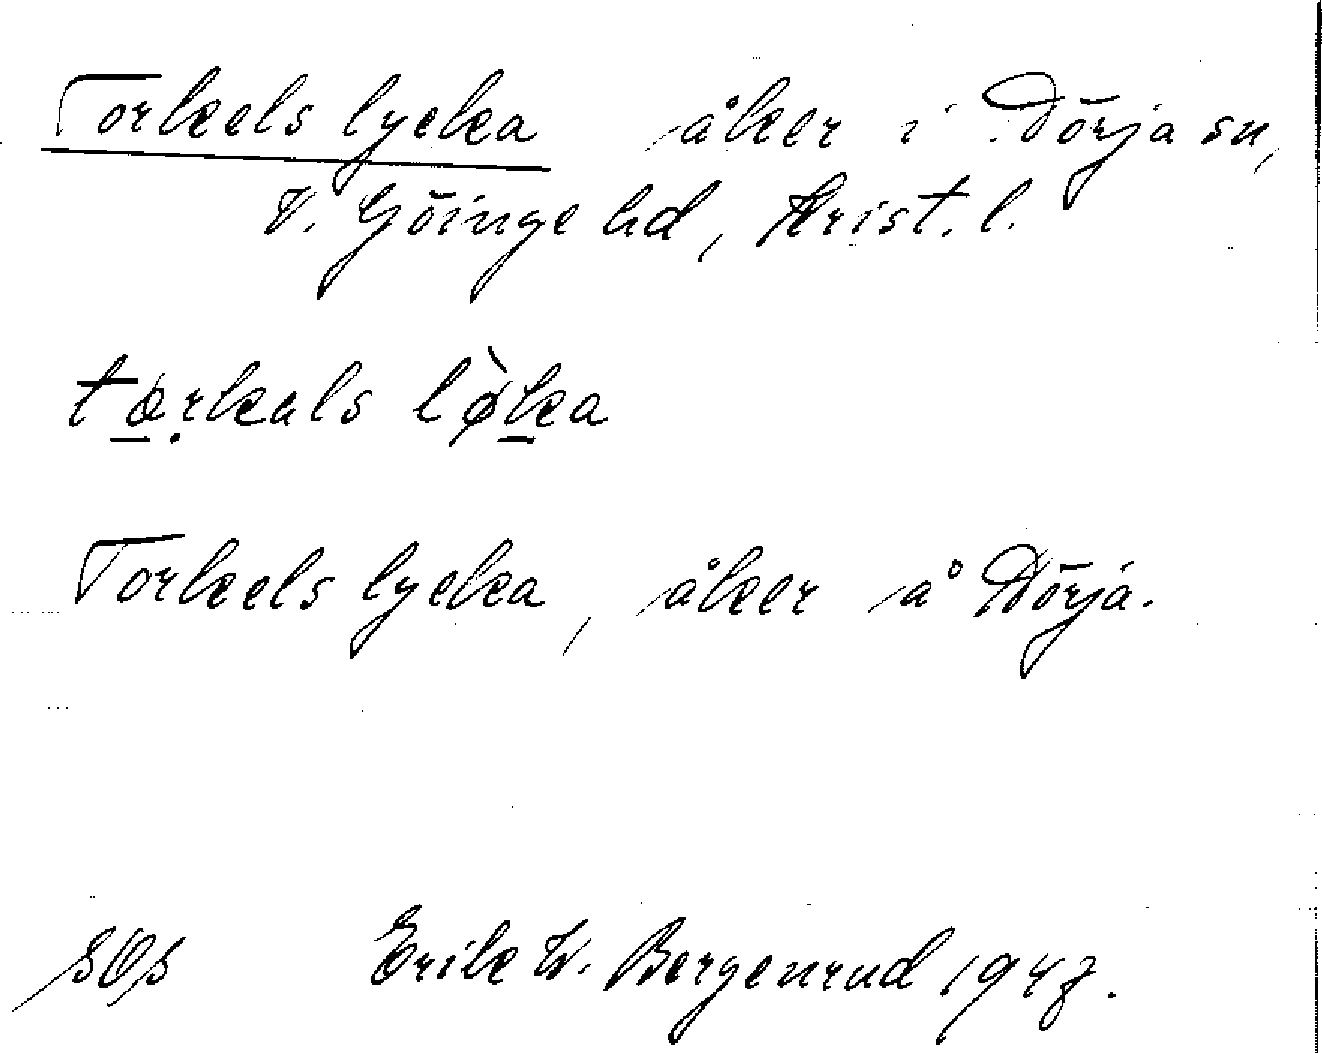 Torkels lycka åker i Dörja sn,
V. Göinge hd, Krist. l.
tærkals lø̀ka
Torkels lycka, åker å Dörja.
sOs Erik W. Bergenrud 1947.